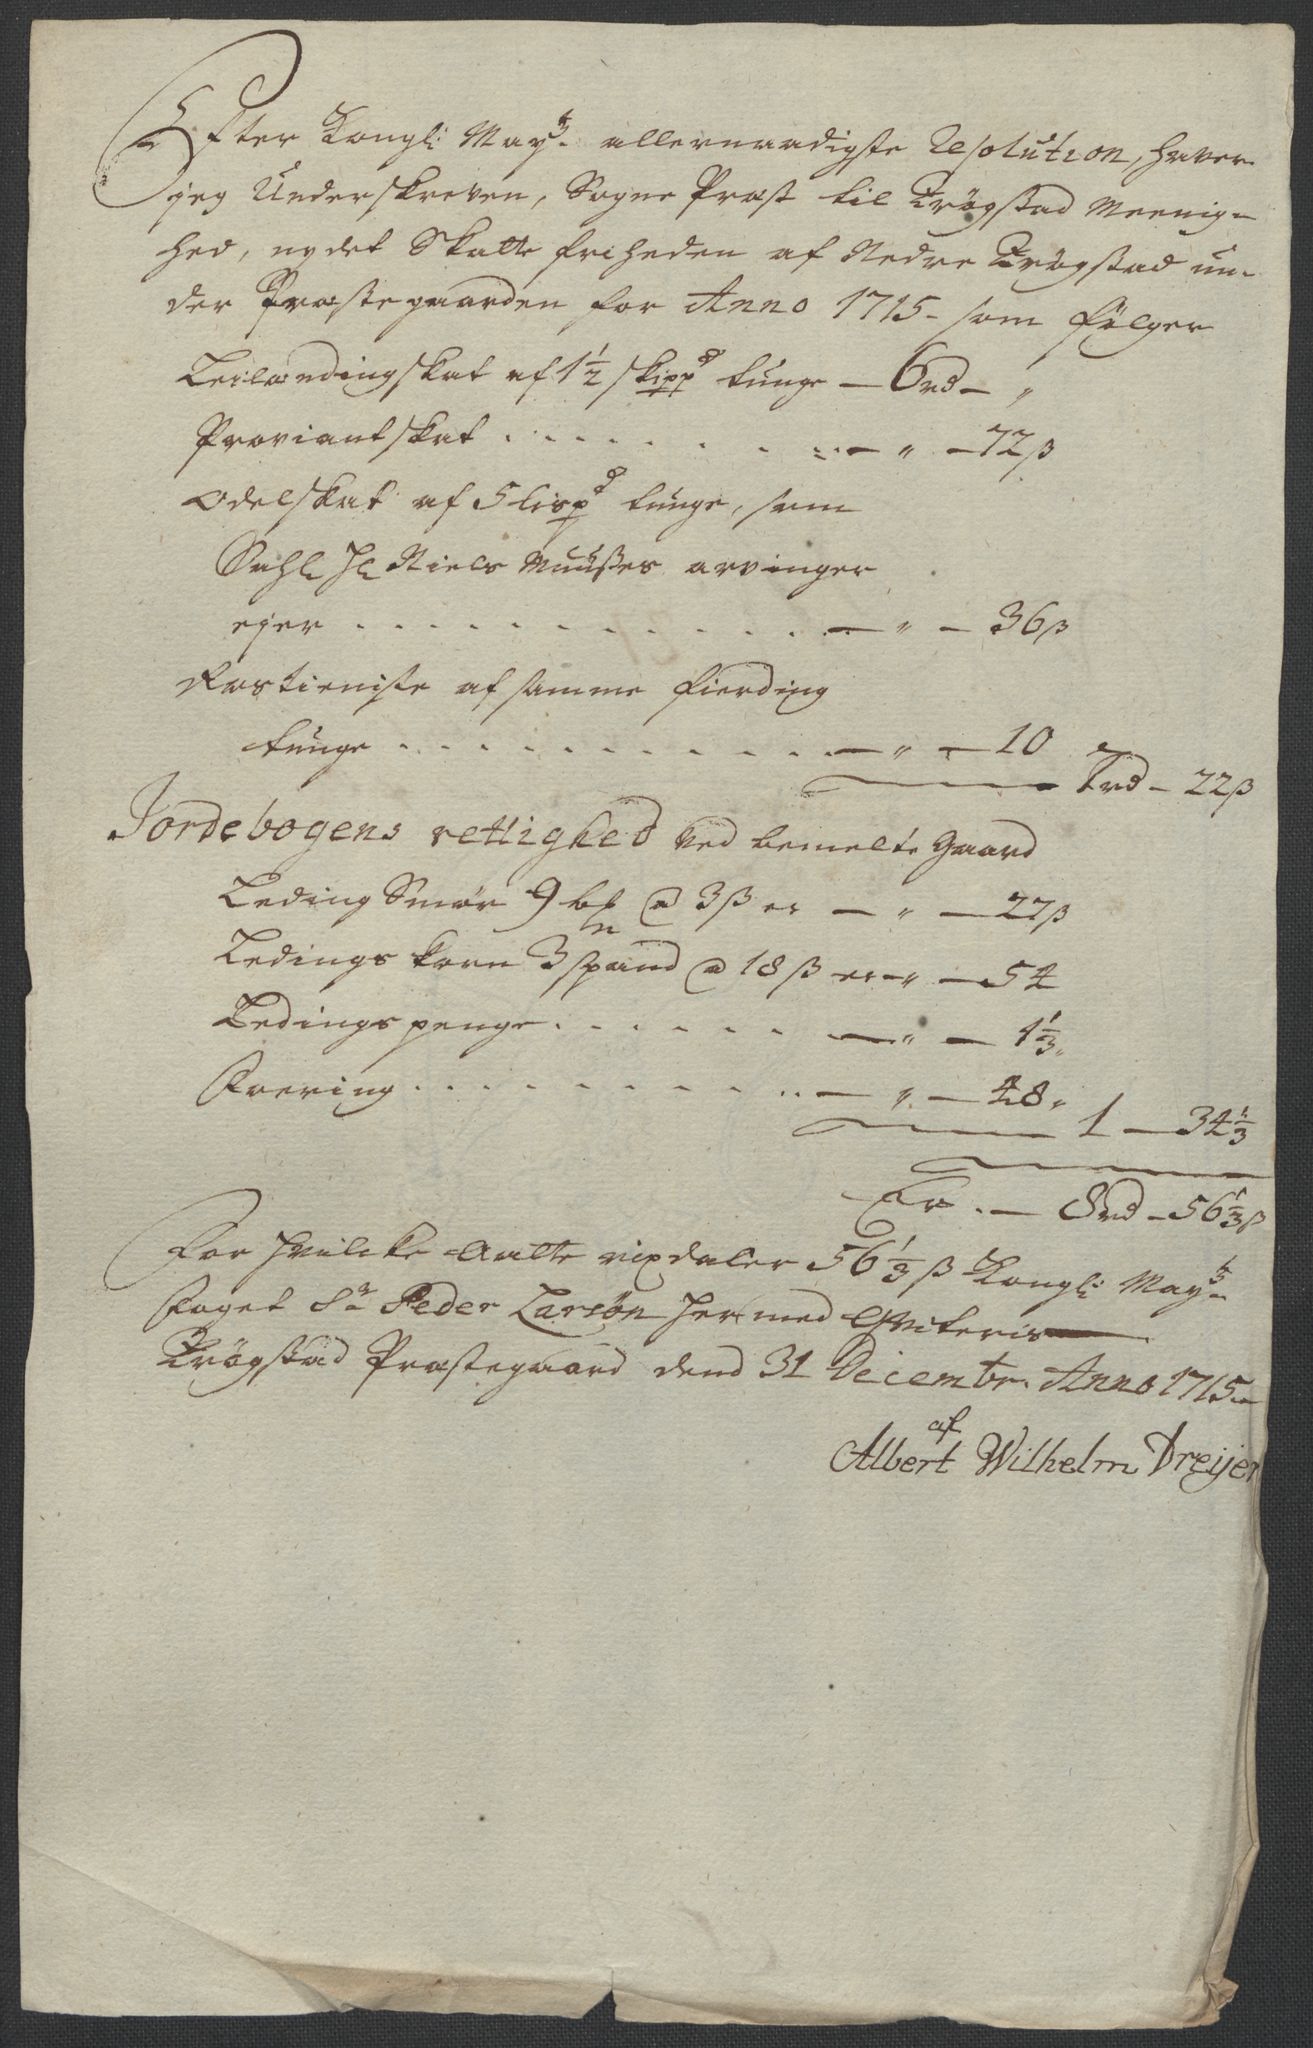 Efter Kongl: May:tz allernaadigste Resolution, haver
jeg Underskreven, Sogne Præst til Krøgstad Meenig-
hed, nydet Skatte friheden af Nedre Krøgstad un-
der Præstegaarden for Anno 1715 - som følger
Leilændingskat af 1½ skippd tunge — 6 rd - „
Proviantskat . . . . . . . . . — „ — 72 β
Odelskat af 5 lispd tunge, som
Sahl Hr Niels Muuses arvinger
ejer . . . . . . . . . . . . — „ — 36 β
Rostieniste af samme fierding
tunge . . . . . . . . . . . — „ — 10
7 rd - 22 β
Jordebogens rettighed ved bemelte Gaard
Leding Smør 9 bl @ 3 β er — „ — 27 β
Ledings korn 3 spand @ 18 β er - „ — 54
Ledings penge . . . . . . — „ — 1⅓ „
Foering . . . . . . . . . — „ — 48 „
1 — 34⅓
Er . — 8 rd - 56⅓ β
For hvilcke Aatte rixdaler 56⅓ β Kongl: May:tz
Foget Sr Peder Larsøn hermed Qviteris
Krøgstad Præstegaard dend 31 Decembr. Anno 1715 -
af
Albert Wilhelm Dreijer